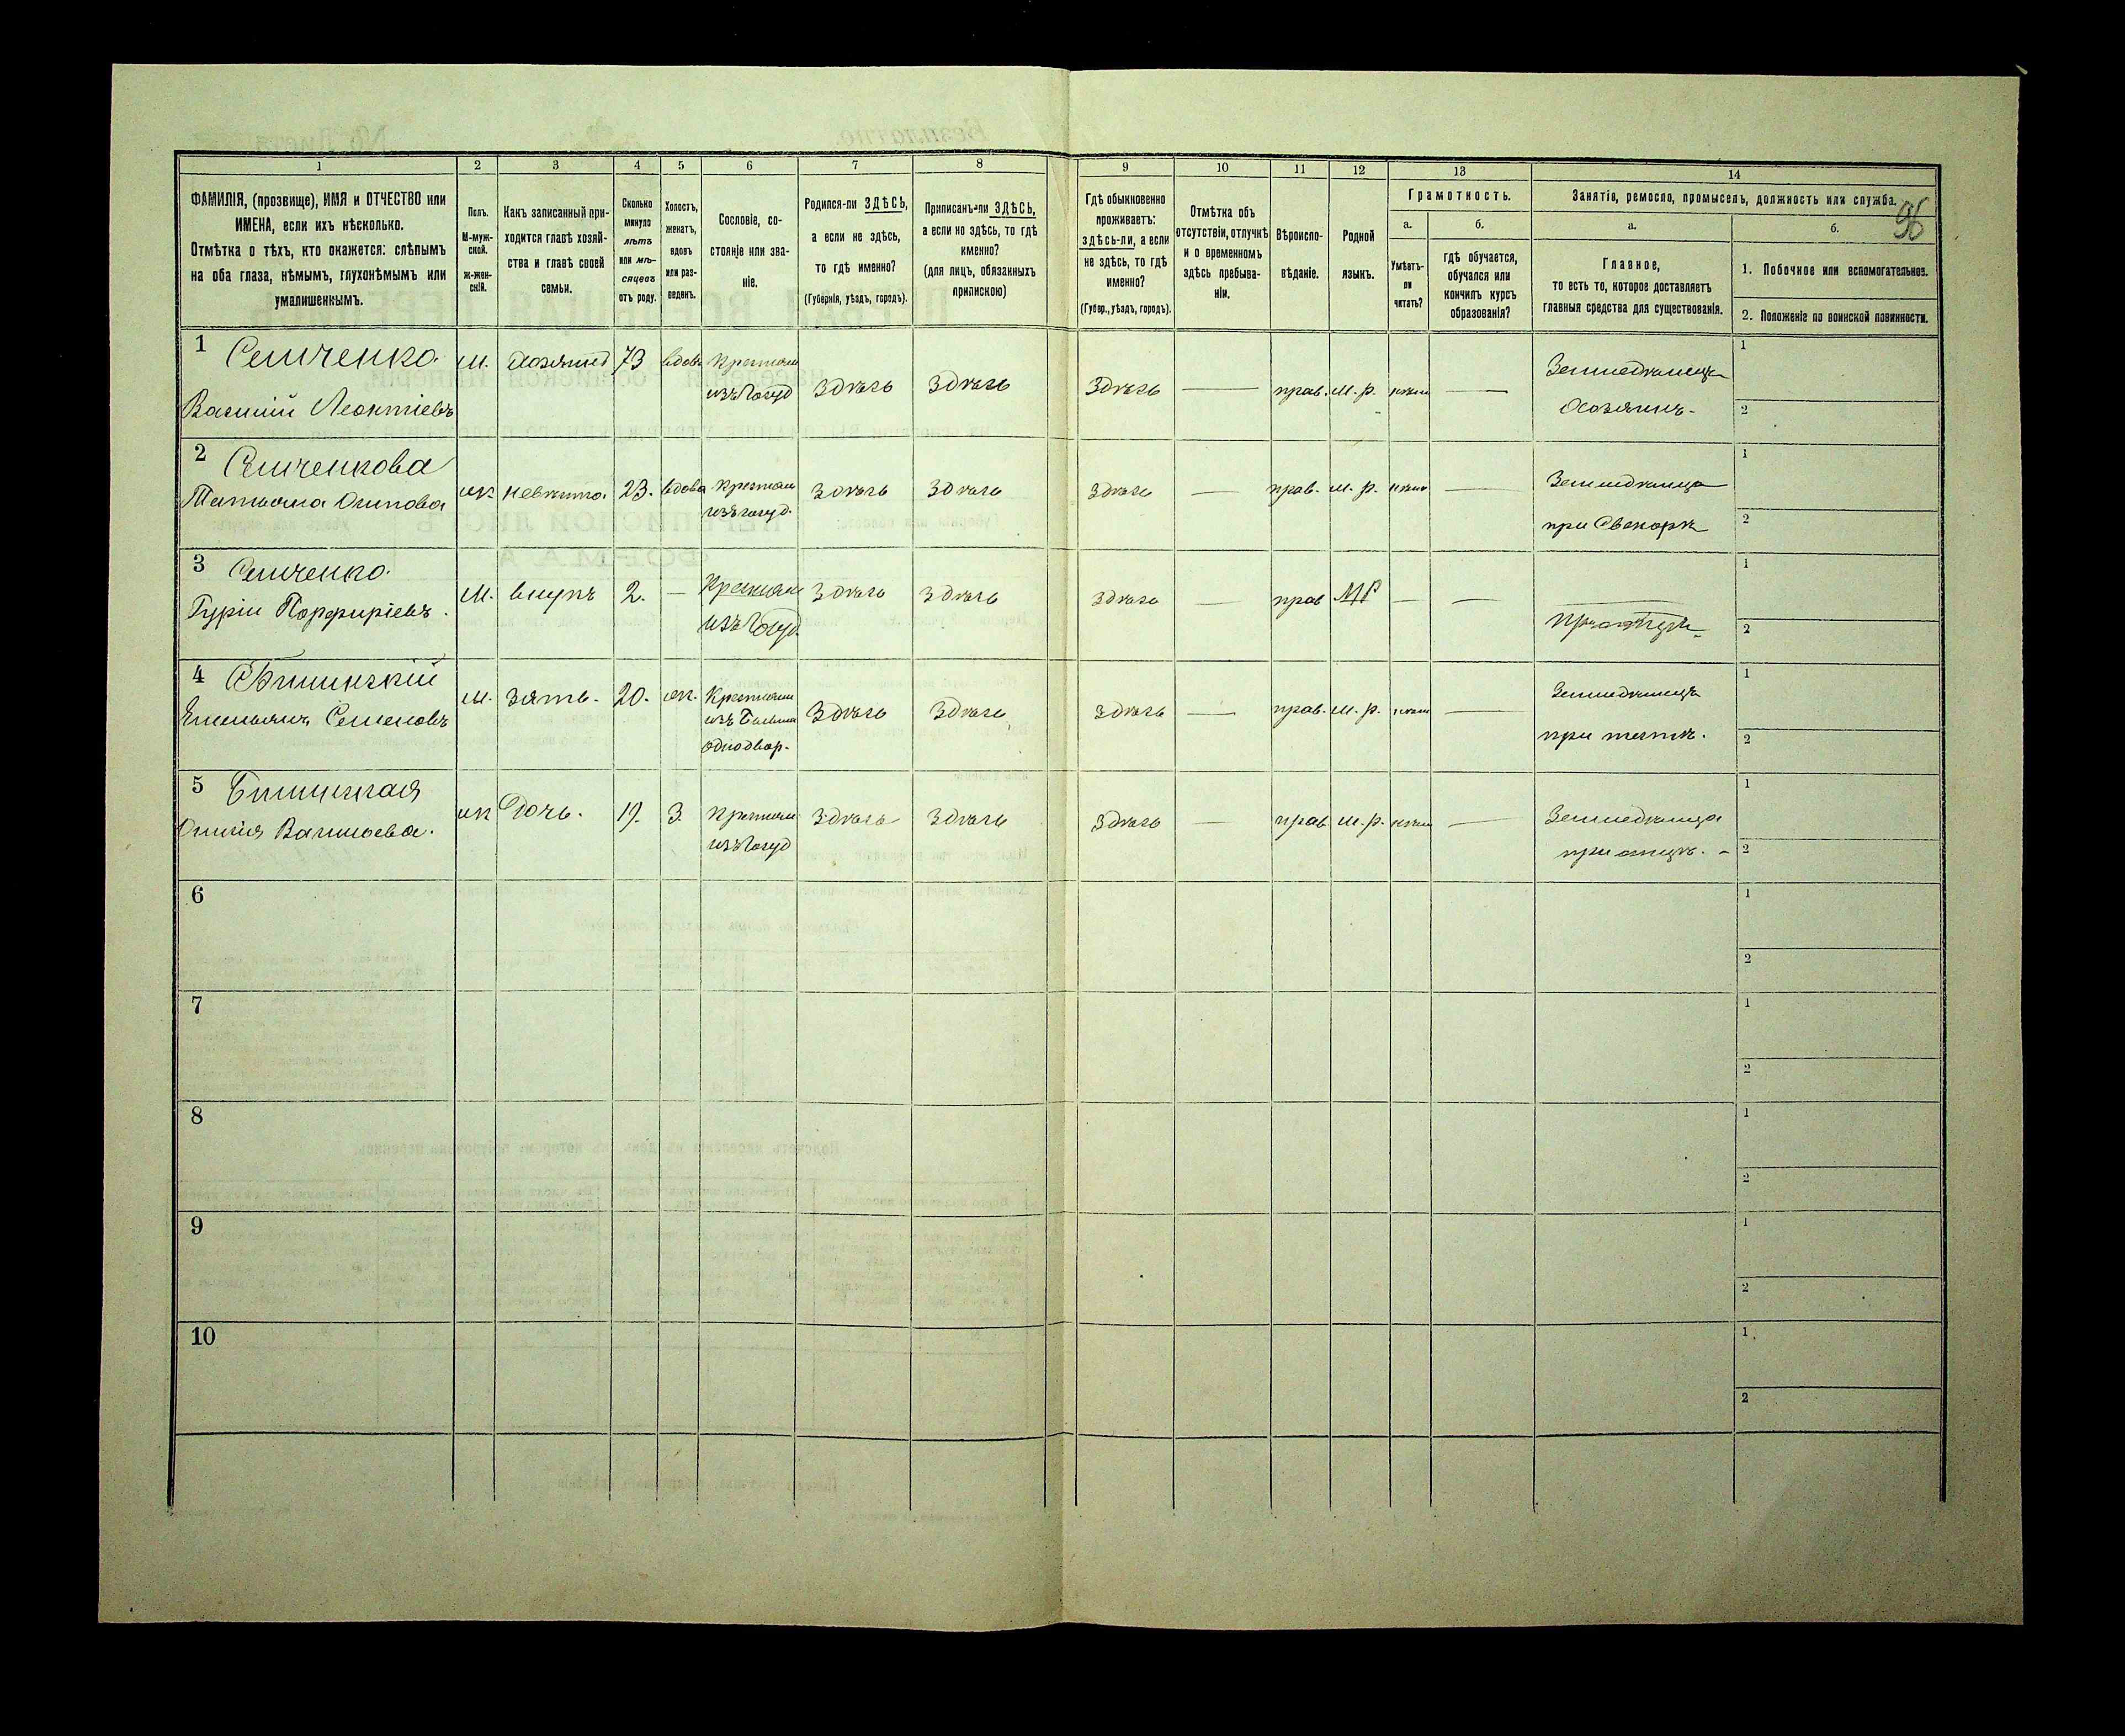 96
1 2 3 4 5 6 7 8 9 10 11 12 13 14
ФАМИЛІЯ, (прозвище), ИМЯ и ОТЧЕСТВО или
ИМЕНА, если ихъ нѣсколько.
Отмѣтка о тѣхъ, кто окажется: слѣпымъ
на оба глаза, нѣмымъ, глухонѣмымъ или
умалишеннымъ.
Полъ.
М-муж-
ской.
Ж-жен-
скій.
Какъ записанный при-
ходится главѣ хозяй-
ства и главѣ своей
семьи.
Сколько
минуло
лѣтъ
или мѣ-
сяцевъ
отъ роду.
Холостъ,
женатъ,
вдовъ
или раз-
веденъ.
Сословіе, со-
стояніе или зва-
ніе.
Родился-ли ЗДѢСЬ,
а если не здѣсь,
то гдѣ именно?
(Губернія, уѣздъ, городъ).
Приписанъ-ли ЗДѢСЬ,
а если но здѣсь, то гдѣ
именно?
(для лицъ, обязанныхъ
припискою)
Гдѣ обыкновенно
проживаетъ:
здѣсь-ли, а если
не здѣсь, то гдѣ
именно?
(Губер., уѣздъ, городъ).
Отмѣтка объ
отсутствіи, отлучкѣ
и о временномъ
здѣсь пребыва-
ніи.
Вѣроиспо-
вѣданіе.
Родной
языкъ.
Грамотность.
а.
Умѣетъ-
ли
читать?
б.
гдѣ обучается,
обучался или
кончилъ курсъ
образованія?
Занятіе, ремесло, промыселъ, должность или служба.
а.
Главное,
то есть то, которое доставляетъ
главныя средства для существованія.
б.
1. Побочное или вспомогательное.
2. Положеніе по воинской повинности.
1 Семченко м. Хозяинъ 73 вдовъ Крестьян Земледѣлецъ 1
Василій Леонтіевъ изъ Госуд Здѣсь Здѣсь Здѣсь — прав. м. р. нѣтъ — Хозяинъ 2
2 Семченкова 1
Татьяна Осипова ж невѣста 23. вдова Крестьян Здѣсь Здѣсь Здѣсь — прав. м. р. — Земледѣлица
изъ госуд. при Свекорѣ 2
3 Семченко 1
Гурій Порфиріевъ м. внукъ 2. — Крестьян Здѣсь Здѣсь Здѣсь — прав МР — —
изъ Госуд. при отцѣ 2
4 м. зять. 20. ж. Крестьян Земледѣлецъ 1
Емельянъ Семеновъ изъ Бывш Здѣсь Здѣсь Здѣсь — прав. м. р. —
однодвор. при тестѣ. 2
5 1
Васильева. ж Дочь. 19. З. Крестьян Здѣсь Здѣсь Здѣсь — прав м. р. — Земледѣлица
изъ Госуд при отцѣ. 2
6 1
2
7 1
2
8 1
2
9 1
2
10 1
2